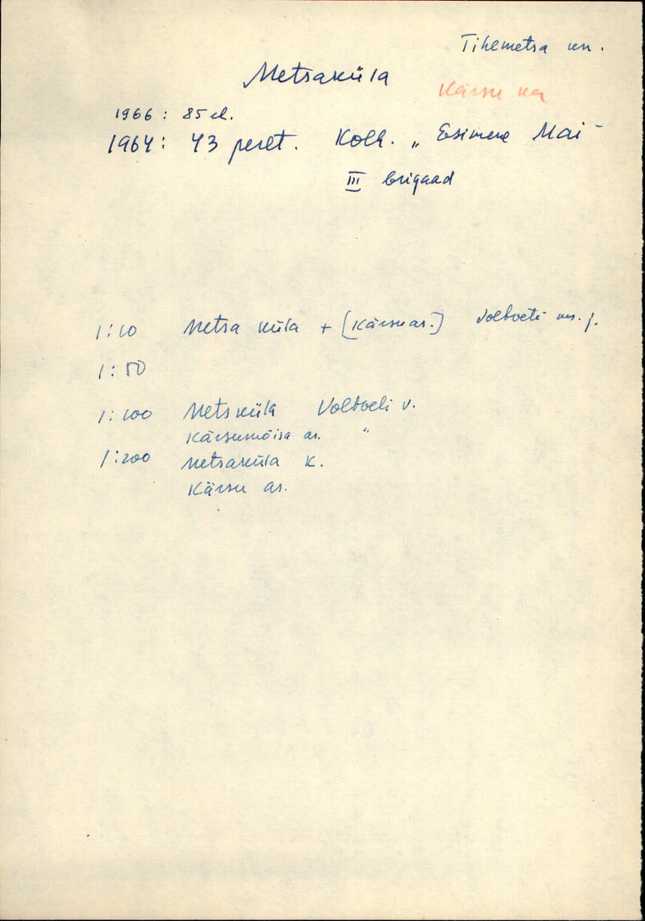 Tihemetsa kn.
Metsaküla
Kärsu ka
1966: 85 el.
1964: 43 peret. Kolh. „Esimene Mai"
III brigaad
1:10 Metsa küla + [Kärsu as.] Voltveti ms. j.
1:50
1:100 Metsküla Voltveti v.
Kärsumõisa as. "
1:200 Metsaküla k.
Kärsu as.